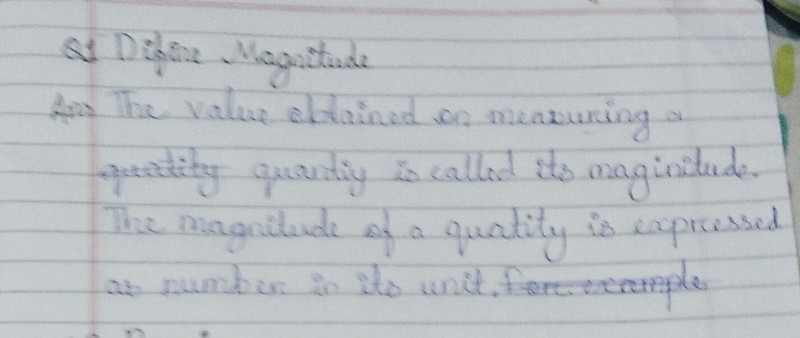 Q1 Difine Magnitude
Ans The value obtained on measuring a
quatity quantiy is called its maginitude.
The magnitude of a quatity is expressed
as number in its unit. For example